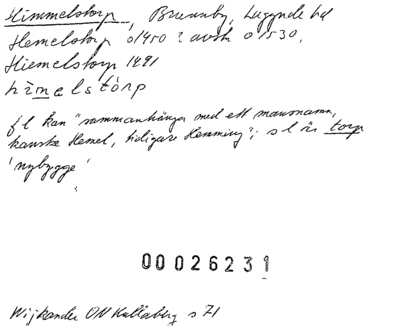 Himmelstorp, Brunnby, Luggude hd
Hemelstorp o1450 i avskr o1530,
Hiemelstorp 1491
himelstorp
fl kan "sammanhänga med ett mansnamn,
kanske Hemel, tidigare Hemming"; sl är torp
'nybygge'
00026231
Wijkander ON Kullaberg s 71